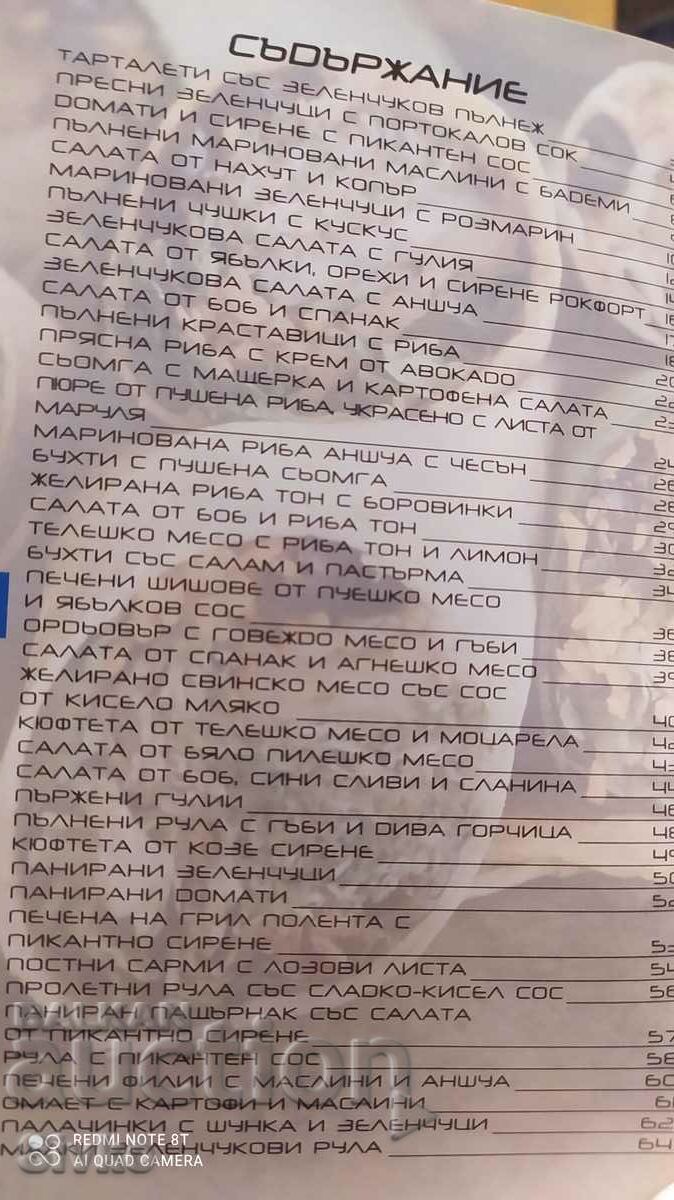 СЪДЪРЖАНИЕ
ТАРТАЛЕТИ СЪС ЗЕЛЕНЧУКОВ ПЪЛНЕЖ
ПРЕСНИ ЗЕЛЕНЧУЦИ С ПОРТОКАЛОВ СОК
ДОМАТИ И СИРЕНЕ С ПИКАНТЕН СОС
ПЪЛНЕНИ МАРИНОВАНИ МАСЛИНИ С БАДЕМИ
САЛАТА ОТ НАХУТ И КОПЪР
МАРИНОВАНИ ЗЕЛЕНЧУЦИ С РОЗМАРИН
ПЪЛНЕНИ ЧУШКИ С КУСКУС
ЗЕЛЕНЧУКОВА САЛАТА С ГУЛИЯ
САЛАТА ОТ ЯБЪЛКИ, ОРЕХИ И СИРЕНЕ РОКФОРТ
ЗЕЛЕНЧУКОВА САЛАТА С АНШУА
САЛАТА ОТ БОБ И СПАНАК
ПЪЛНЕНИ КРАСТАВИЦИ С РИБА
ПРЯСНА РИБА С КРЕМ ОТ АВОКАДО 20
СЬОМГА С МАЩЕРКА И КАРТОФЕНА САЛАТА 22
ПЮРЕ ОТ ПУШЕНА РИБА, УКРАСЕНО С ЛИСТА ОТ 23
МАРУЛЯ 24
МАРИНОВАНА РИБА АНШУА С ЧЕСЪН 26
БУХТИ С ПУШЕНА СЬОМГА 28
ЖЕЛИРАНА РИБА ТОН С БОРОВИНКИ 29
САЛАТА ОТ БОБ И РИБА ТОН 30
ТЕЛЕШКО МЕСО С РИБА ТОН И ЛИМОН 32
БУХТИ СЪС САЛАМ И ПАСТЪРМА 34
ПЕЧЕНИ ШИШОВЕ ОТ ПУЕШКО МЕСО
И ЯБЪЛКОВ СОС 36
ОРДЬОВЪР С ГОВЕЖДО МЕСО И ГЪБИ 38
САЛАТА ОТ СПАНАК И АГНЕШКО МЕСО 39
ЖЕЛИРАНО СВИНСКО МЕСО СЪС СОС
ОТ КИСЕЛО МЛЯКО 40
КЮФТЕТА ОТ ТЕЛЕШКО МЕСО И МОЦАРЕЛА 42
САЛАТА ОТ БЯЛО ПИЛЕШКО МЕСО 43
САЛАТА ОТ БОБ, СИНИ СЛИВИ И СЛАНИНА 44
ПЪРЖЕНИ ГУЛИИ 46
ПЪЛНЕНИ РУЛА С ГЪБИ И ДИВА ГОРЧИЦА 48
КЮФТЕТА ОТ КОЗЕ СИРЕНЕ 49
ПАНИРАНИ ЗЕЛЕНЧУЦИ 50
ПАНИРАНИ DОМАТИ 52
ПЕЧЕНА НА ГРИЛ ПОЛЕНТА С
ПИКАНТНО СИРЕНЕ 53
ПОСТНИ САРМИ С ЛОЗОВИ ЛИСТА 54
ПРОЛЕТНИ РУЛА СЪС СЛАДКО-КИСЕЛ СОС 56
ПАНИРАН ПАЩЪРНАК СЪС САЛАТА
ОТ ПИКАНТНО СИРЕНЕ 57
РУЛА С ПИКАНТЕН СОС 58
ПЕЧЕНИ ФИЛИИ С МАСЛИНИ И АНШУА 60
ОМЛЕТ С КАРТОФИ И МАСЛИНИ 61
ПАЛАЧИНКИ С ШУНКА И ЗЕЛЕНЧУЦИ 62
МАЛКИ ЗЕЛЕНЧУКОВИ РУЛА 64
BALKAN
auction
REDMI NOTE 8T
AI QUAD CAMERA